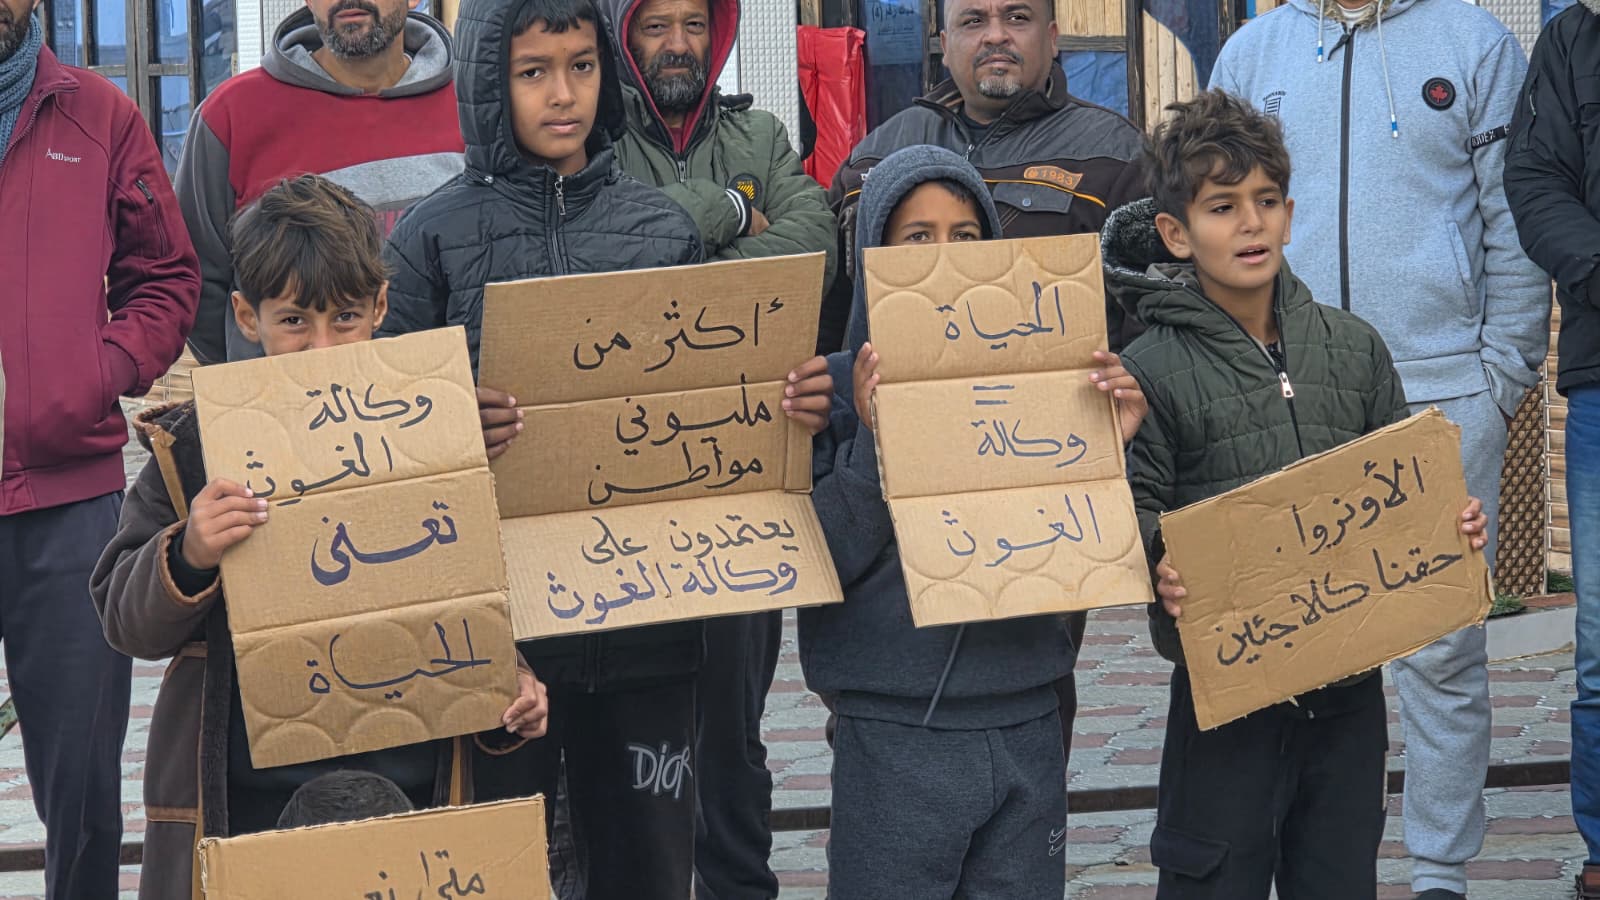 وكالة
الغوث
تعنى
الحياة
أكثر من
مليوني
مواطن
يعتمدون على
وكالة الغوث
الحياة
=
وكالة
الغوث
الأونروا
حقنا كلاجئين
متى
ABD SPORT
1983
DIOR